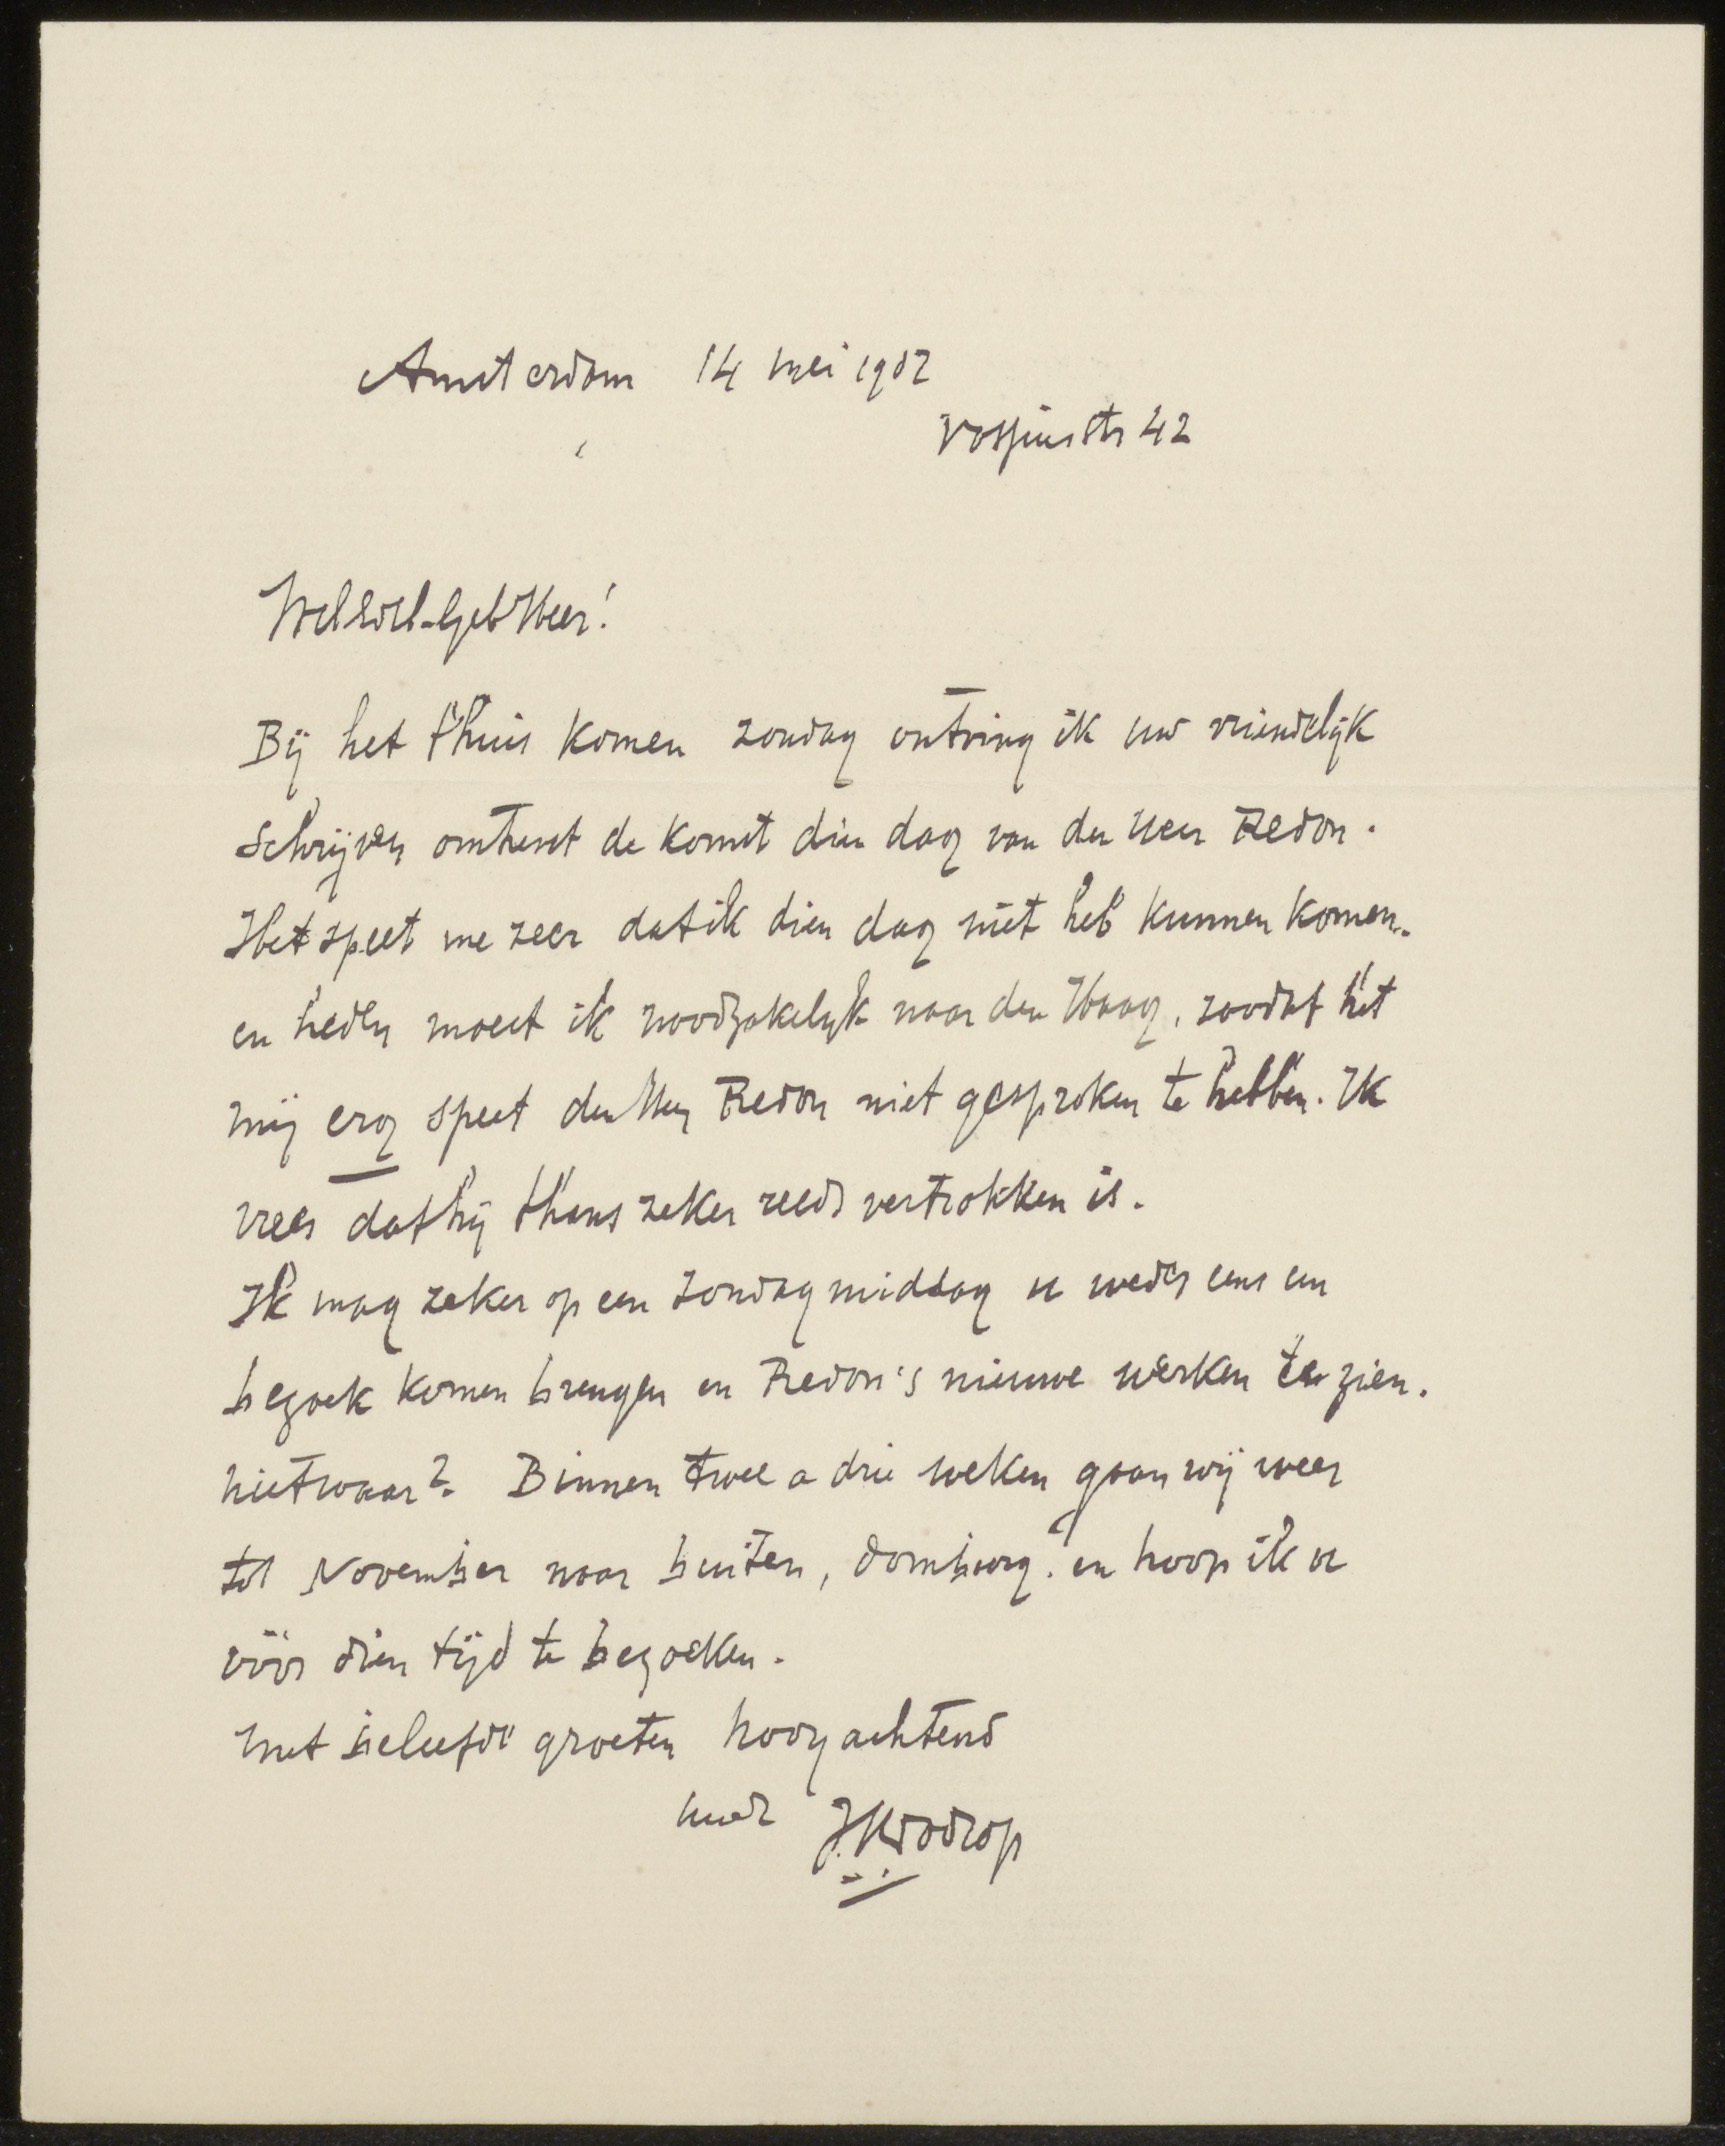 Amsterdam 14 mei 1907
Vossiusstr 42
WelEdel-Geb Heer!
Bij het thuis komen zondag ontving ik uw vriendelijk
schrijven omtrent de komst dien dag van den Heer Redon.
Het speet me zeer dat ik dien dag niet heb kunnen komen..
en heden moest ik noodzakelijk naar den Haag, zoodat het
mij erg speet den Heer Redon niet gesproken te hebben. Ik
vrees dat hij thans zeker reeds vertrokken is.
Ik mag zeker op een zondag middag u weder eens een
bezoek komen brengen en Redon's nieuwe werken te zien.
nietwaar? Binnen twee a drie weken gaan wij weer
tot November naar buiten, domburg. en hoop ik u
vóór dien tijd te bezoeken.
met beleefde groeten hoogachtend
uwd JThToorop